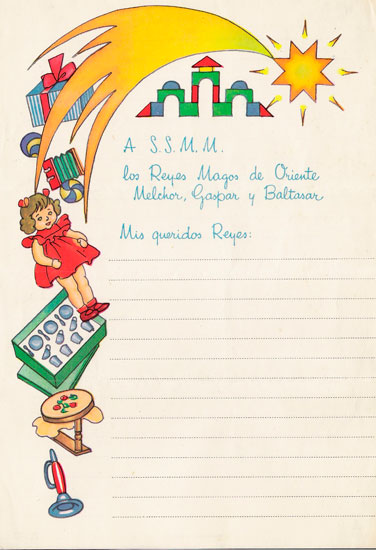 A S.S.M.M.
los Reyes Magos de Oriente
Melchor, Gaspar y Baltasar
Mis queridos Reyes: